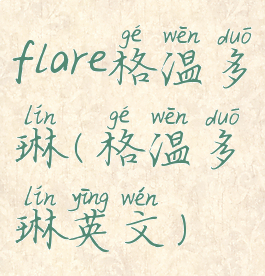 gé wēn duō
flare格温多
lín gé wēn duō
琳(格温多
lín yīng wén
琳英文)